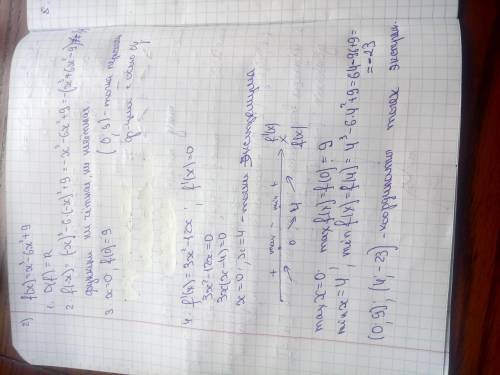 2) f(x)=x³-6x²+9
1. D(f)=R
2. f(-x)=(-x)³-6·(-x)²+9=-x³-6x²+9=-(x³+6x²-9)≠
функция ни чётная, ни нечётная
3. x=0, f(0)=9 (0; 9) - точка
с осью Oy
4. f'(x)=3x²-12x; f'(x)=0
3x²-12x=0
3x(x-4)=0
x=0; x=4 - точки экстремума
+ max - min + f'(x)
0 4 x
↗ ↘ ↗ f(x)
max x=0; max f(x)=f(0)=9
min x=4; min f(x)=f(4)=4³-6·4²+9=64-96+9=
=-23
(0; 9); (4; -23) - координаты точек экстрем.